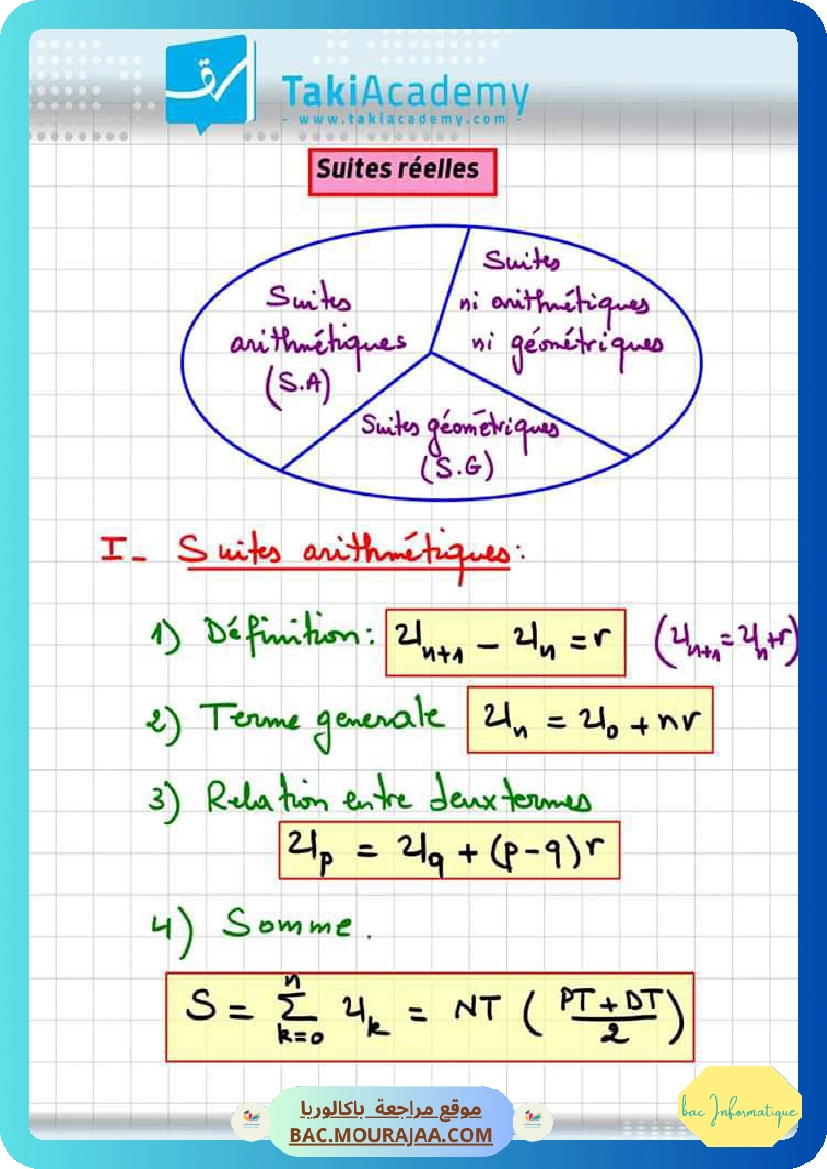 TakiAcademy
- www.takiacademy.com -
Suites réelles
Suites
arithmétiques
(S.A)
Suites
ni arithmétiques
ni géométriques
Suites géométriques
(S.G)
I - Suites arithmétiques :
1) Définition : U_{n+1} - U_n = r (U_{n+1} = U_n + r)
2) Terme generale U_n = U_0 + nr
3) Relation entre deux termes
U_p = U_q + (p-q)r
4) Somme.
S = \sum_{k=0}^{n} U_k = NT ( \frac{PT + DT}{2} )
موقع مراجعة باكالوريا
BAC.MOURAJAA.COM
bac Informatique